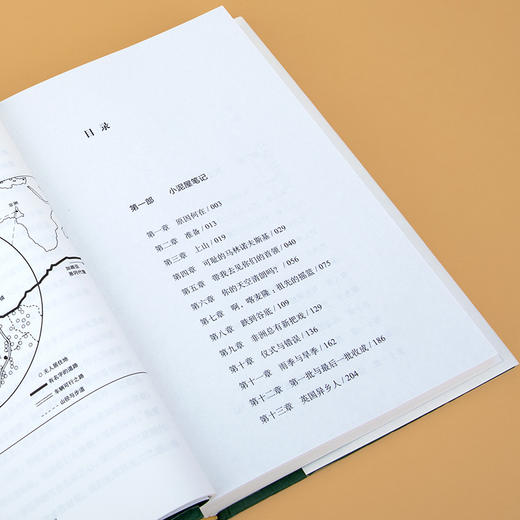 目 录
第一部 小泥屋笔记
第一章 原因何在 /003
第二章 准备 /013
第三章 上山 /019
第四章 可耻的马林诺夫斯基 /029
第五章 带我去见你们的首领 /040
第六章 你的天空清朗吗？ /056
第七章 啊，喀麦隆：祖先的摇篮 /075
第八章 跌到谷底 /109
第九章 非洲总有新把戏 /129
第十章 仪式与错误 /136
第十一章 雨季与旱季 /162
第十二章 第一批与最后一批收成 /186
第十三章 英国异乡人 /204
无人居住地
有名字的道路
车辆可行之路
山径与步道